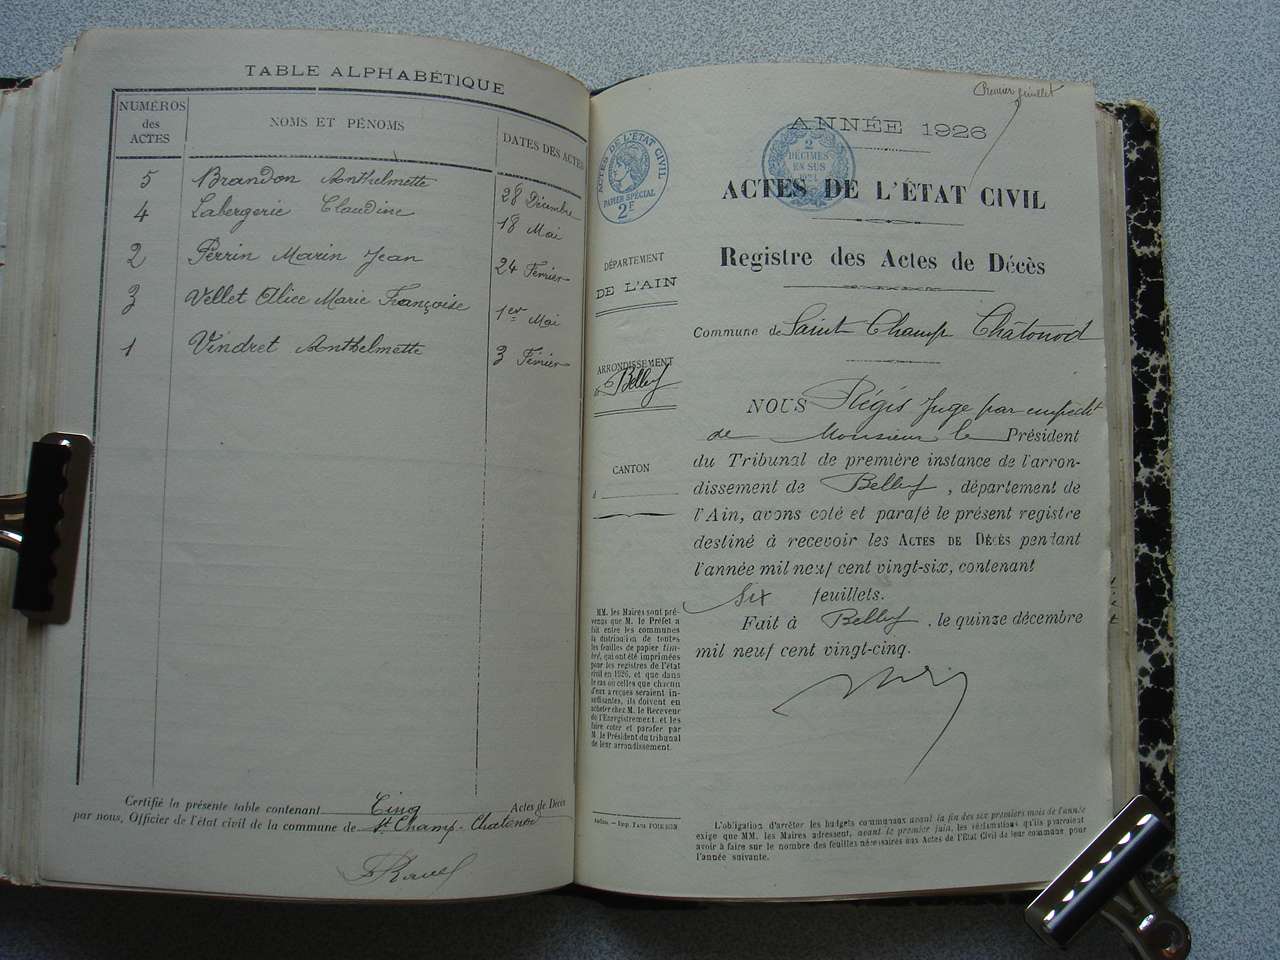 TABLE ALPHABÉTIQUE
NUMÉROS des ACTES
NOMS ET PÉNOMS
DATES DES ACTES
5 Brandon Anthelmette 28 Décembre
4 Labergerie Claudine 18 Mai
2 Perrin Marin Jean 24 Février
3 Vellet Alice Marie Françoise 1er Mai
1 Vindret Anthelmette 3 Février
Certifié la présente table contenant Cinq Actes de Décès
par nous, Officier de l'état civil de la commune de St Champ-Chatonod
Premier feuillet
ANNÉE 1926
ACTES DE L'ÉTAT CIVIL
PAPIER SPÉCIAL
2F
2
DÉCIMES
EN SUS
ACTES DE L'ÉTAT CIVIL
Registre des Actes de Décès
DÉPARTEMENT
DE L'AIN
Commune de Saint Champ Chatonod
ARRONDISSEMENT
de Belley
CANTON
NOUS Régis Juge par empecht
de Monsieur le Président
du Tribunal de première instance de l'arron-
dissement de Belley, département de
l'Ain, avons coté et parafé le présent registre
destiné à recevoir les ACTES DE DÉCÈS pendant
l'année mil neuf cent vingt-six, contenant
Six feuillets.
Fait à Belley, le quinze décembre
mil neuf cent vingt-cinq.
MM. les Maires sont pré-
venus que M. le Préfet a
fait entre les communes
la distribution de toutes
les feuilles de papier tim-
bré, qui ont été imprimées
pour les registres de l'état
civil en 1926, et que dans
le cas où celles que chacun
d'eux a reçues seraient in-
suffisantes, ils doivent en
acheter chez M. le Receveur
de l'Enregistrement, et les
faire coter et parafer par
M. le Président du tribunal
de leur arrondissement.
L'obligation d'arrêter les budgets communaux avant la fin des six premiers mois de l'année
exige que MM. les Maires adressent, avant le premier juin, les réclamations qu'ils pourraient
avoir à faire sur le nombre des feuilles nécessaires aux Actes de l'État Civil de leur commune pour
l'année suivante.